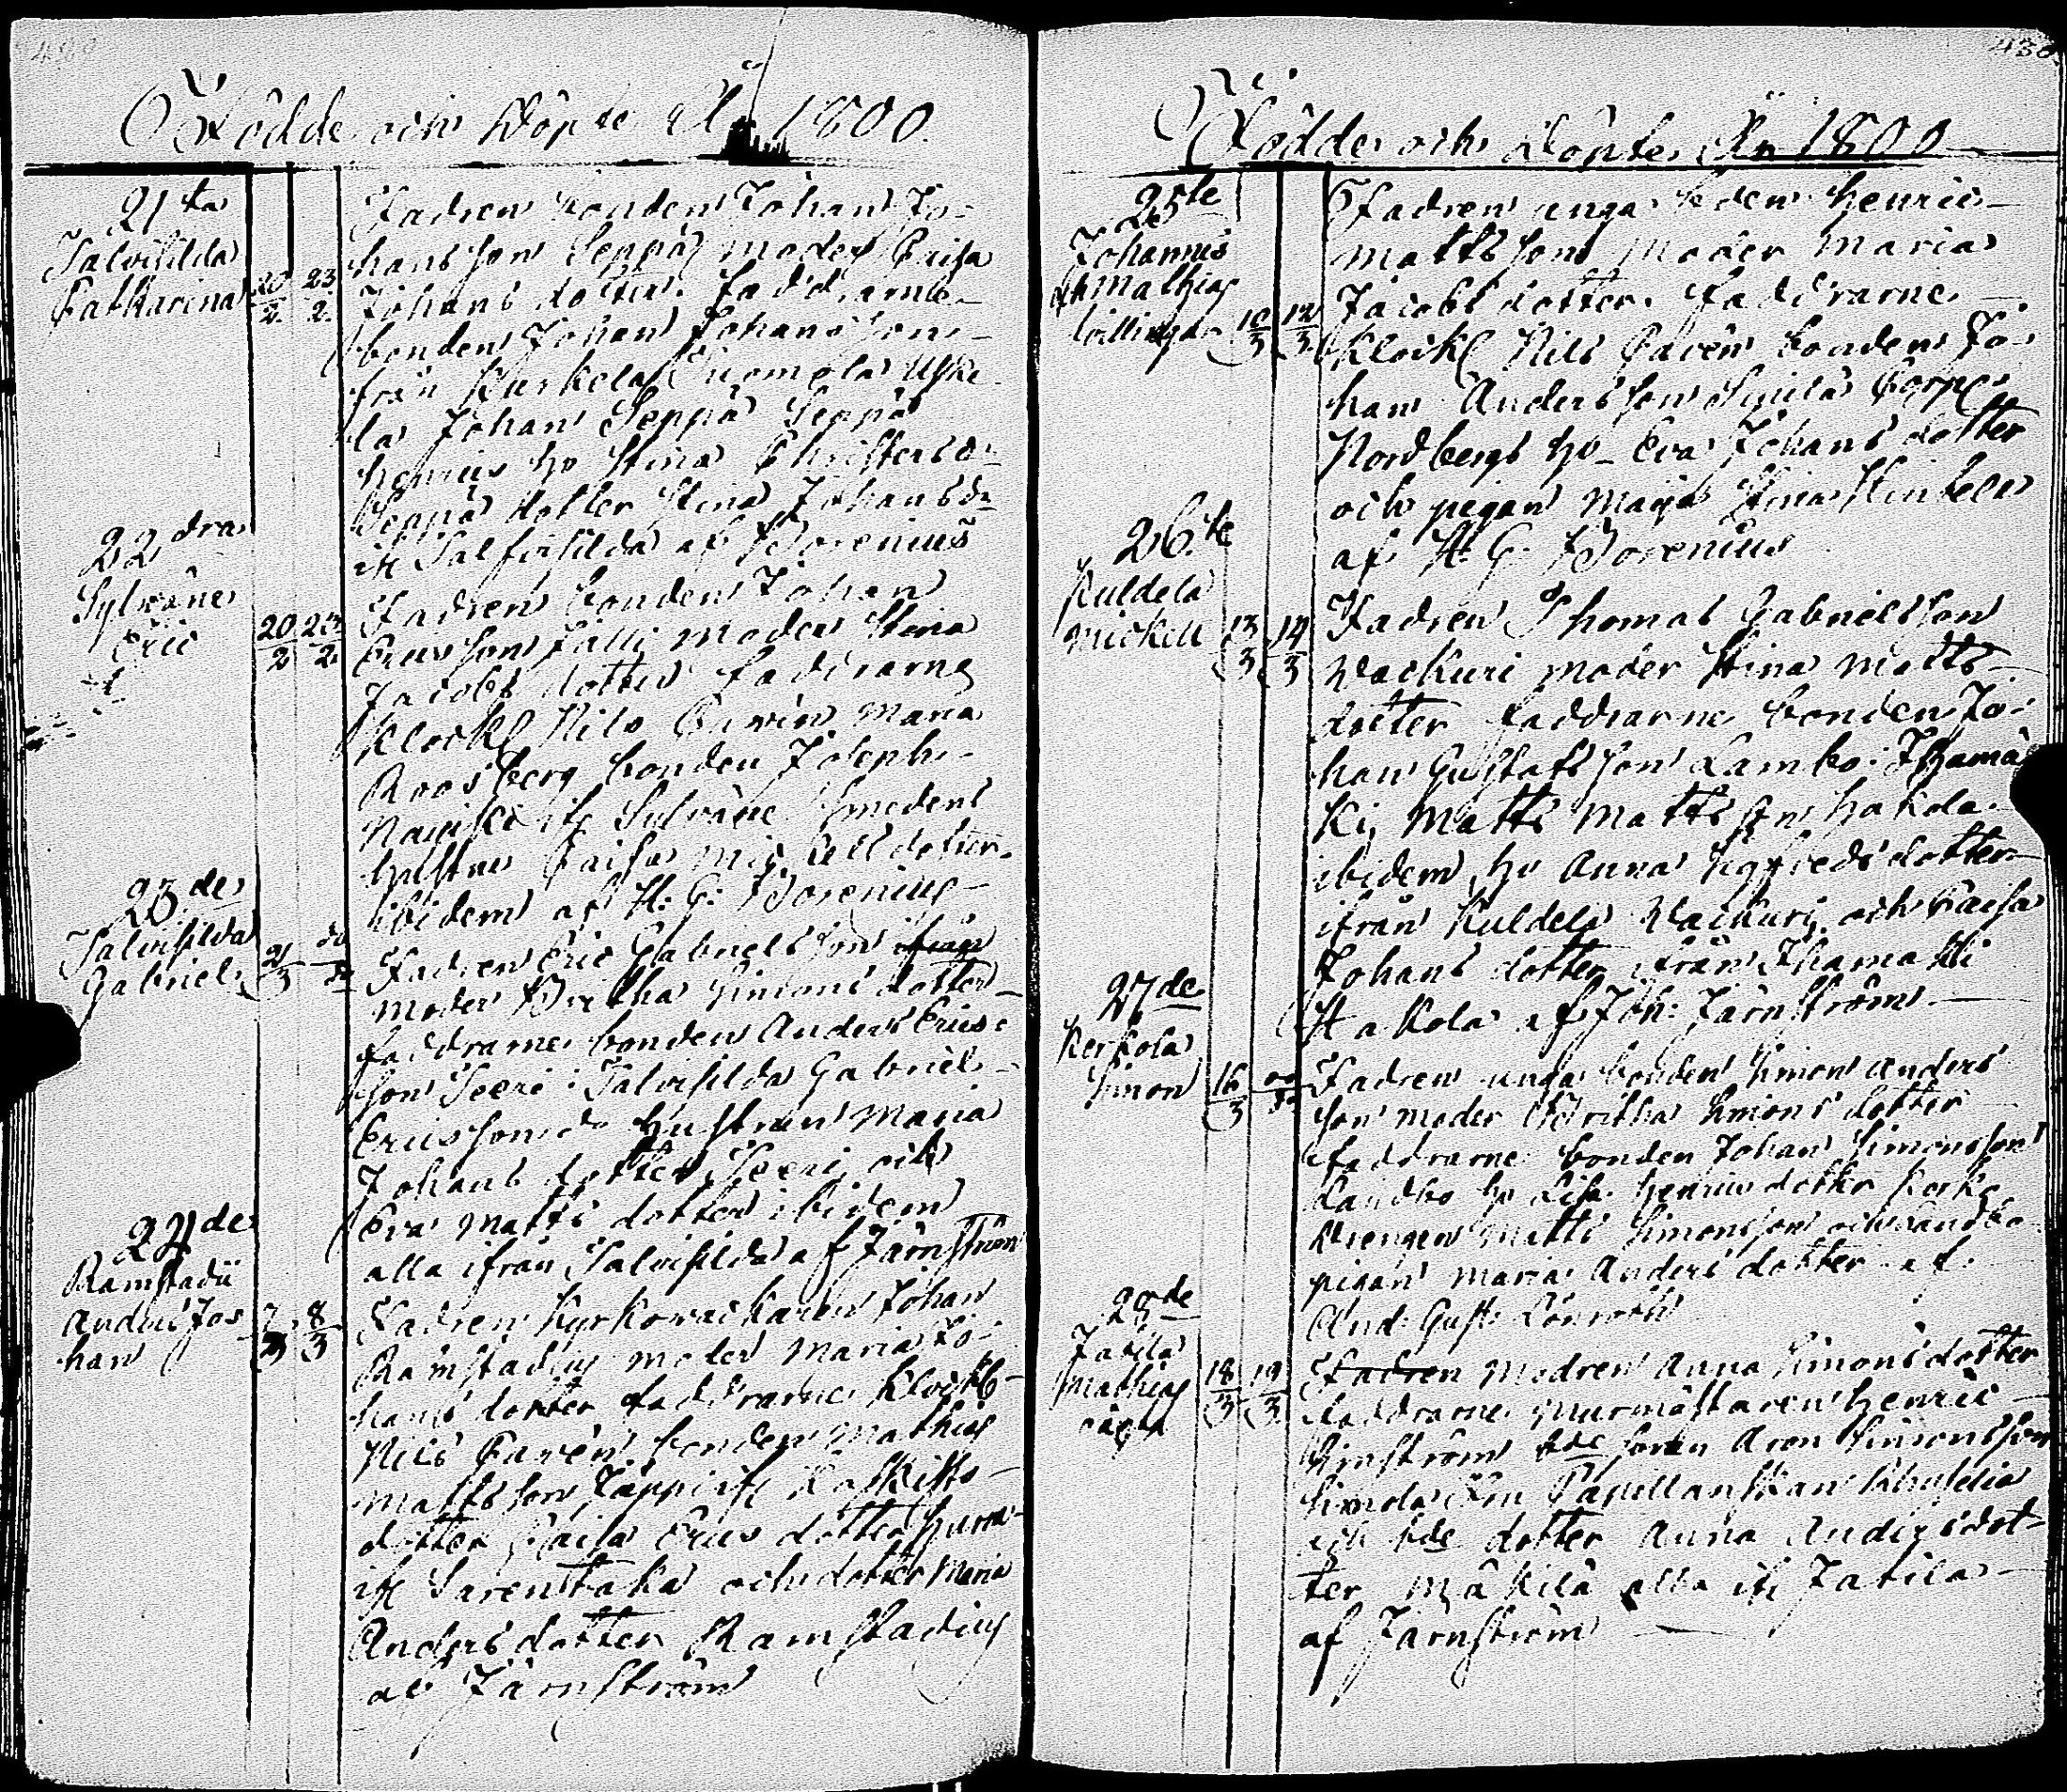 Födde och Döpte År 1800.
21sta
Salvisilda
Catharina 20/2 23/2
Fadren bonden Johan Jo-
hansson Seppä moder Caisa
Johans dotter. faddrarne
bonden Johan Johansson
från Kurkela
la Johan Seppä Seppä
Henrics h:o Stina Christersd:r
Seppä dotter Stina Johansd:r
if. Salfvisilda af Borenius
22dra
Sylväne
Eric 20/2 23/2
Fadren bonden Johan
Ericsson Fälli moder Stina
Jacobs dotter faddrarne
Klock. Nils Caven Maria
Roosberg bonden Joseph
if. Sylväne Smedens
hustru Caisa Mickelldotter
ibidem af H: G: Borenius
23de
Salvisilda
Gabriel 2/3 do
Fadren Eric Gabrielsson ifrån
moder Britha Simons dotter
faddrarne bonden Anders Erics-
son Seeri: Salvisilda Gabriel
Ericsson d:o hustrun Maria
Johans dotter Seeri och
Eva Matts dotter ibidem
alla ifrån Salvisilda af Järnström
24de
Ramstadii
Anders Jo-
han 7/3 8/3
Fadren kyrkovacktaren Johan
Ramstadius moder Maria Jo-
hans dotter faddrarne Klock.
Nils Caven bonden Mathias
Mattsson Jäppi if.
dotter Caisa Erics dotter
if. Sarenstaka och dotter Maria
Anders dotter Ramstadius
af Järnström
430
Födde och Döpte År 1800
25te
Johannes
och Mathias
tvillingar 10/3 12/3
Fadren unga bonden Henric
Mattsson Moder Maria
Jacobs dotter. faddrarne
Klock. Nils Caven bonden Jo-
han Andersson Corp.
Nordbergs h:o Eva Johans dotter
och pigan Maja Stina
af H. G. Borenius
26te
Kuldela
Mickell 13/3 14/3
Fadren Thomas Gabrielsson
Wackuri moder Stina Matts
dotter faddrarne bonden Jo-
han Gustafsson Lambo: Ihamä
ki, Matts Mattsson Hakola
ibidem, h:o Anna Sigfreds dotter
ifrån Kuldela Wackuri och Caisa
Johans dotter ifrån Ihamäki
Hakola af Joh: Järnström
27de
Kerkola
Simon 16/3 do
Fadren unga bonden Simon Anders
son moder Britha Simons dotter
faddrarne bonden Johan Simonsson
Landbo h:o Lisa Henrics dotter
Drengen Matts Simonsson och
pigan Maria Anders dotter af
And: Gust: Lönroth
28de
Jatila
Mathias
oägta 18/3 19/3
Fadren Modren Anna Simons dotter
faddrarne Murmästaren Henric
sonen Aron Simonsson
och b:de dotter Anna Andersdot-
ter Mäkilä alla if. Jatila
af Järnström